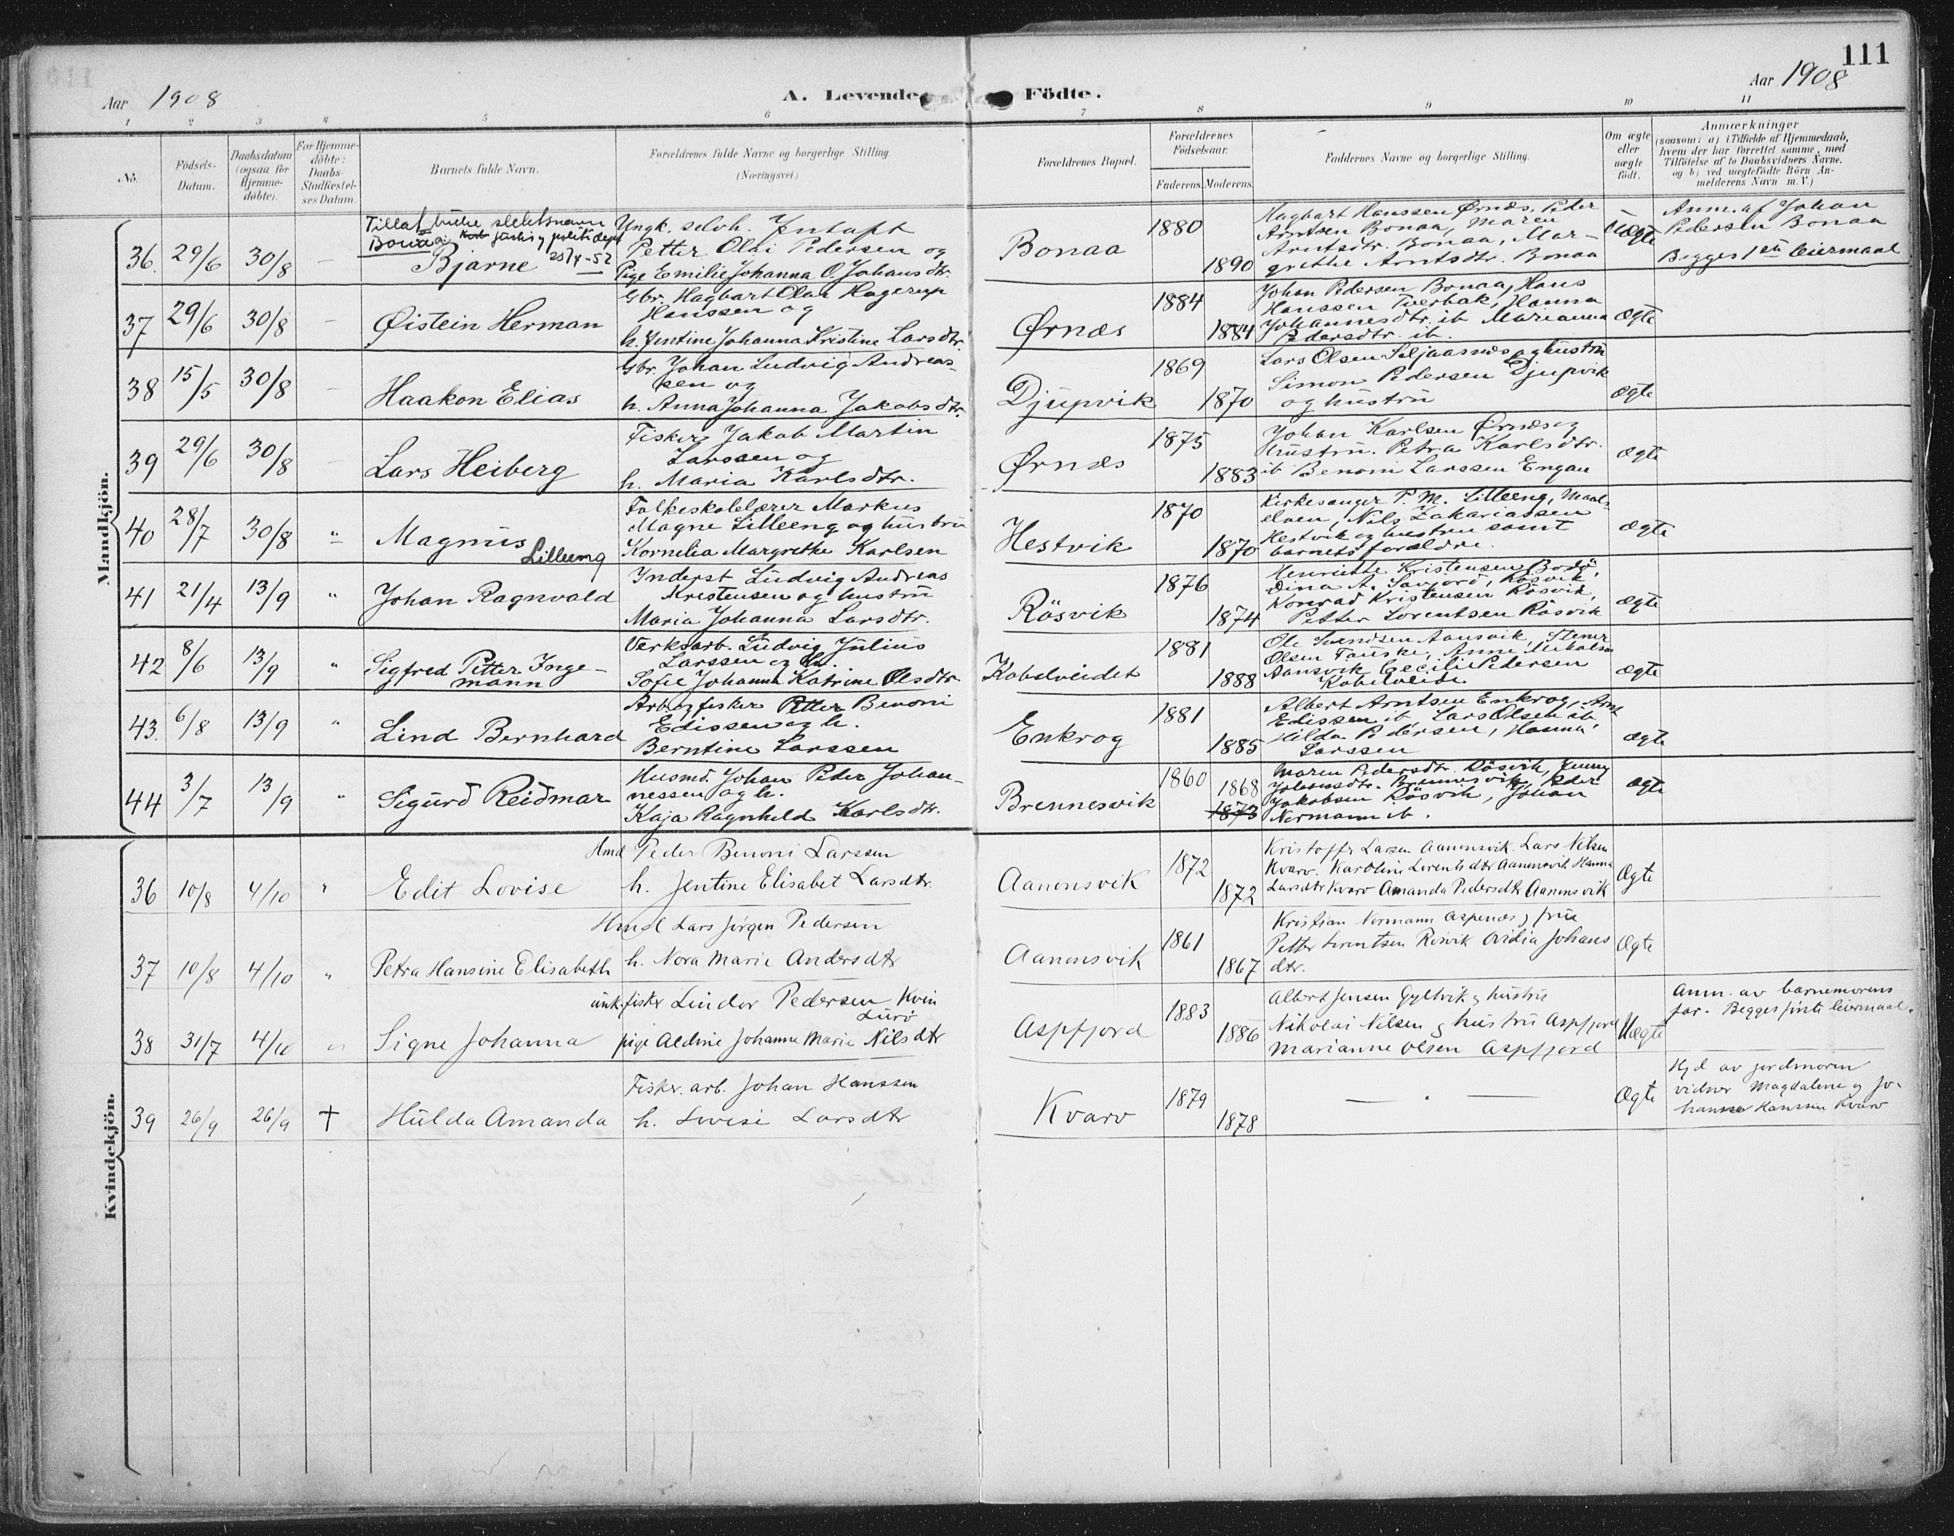 111
Aar 1908
A. Levende Födte.
Aar 1908
1 2 3 4 5 6 7 8 9 10 11
No.
Födsels-
Datum.
Daabsdatum
(ogsaa for
Hjemme-
döbte).
For Hjemme-
döbte:
Daabs-
Stadfæstel-
ses Datum.
Barnets fulde Navn.
Forældrenes fulde Navne og borgerlige Stilling.
(Næringsvei)
Forældrenes Bopæl.
Forældrenes
Födselsaar.
Faderens. Moderens.
Faddernes Navne og borgerlige Stilling.
Om ægte
eller
uægte
födt.
Anmærkninger
(saasom: a) i Tilfælde af Hjemmedaab,
hvem der har forrettet samme, med
Tilföielse af to Daabsvidners Navne,
og b) ved uægtefödte Börn An-
melderens Navn m. V.)
Mandkjön.
36. 29/6 30/8 –
Tillat bruke slektsnavn
Bonaa
Bjarne 23/4-52
Ungk. selvh. Intapt
Petter Olai Pedersen og
Pige Emilie Johanna O. Johansdtr.
Bonaa 1880 1890
Hagbart Hanssen Ørnæs, Peder
Arntsen Bonaa, Maren
Arntsdtr. Bonaa, Mar-
grethe Arntsdtr. Bonaa
Uægte
Anm. af Johan
Pedersen Bonaa
Begges 1ste leiermaal
37 29/6 30/8 – Øistein Herman
Gbr. Hagbart Olai Hagerup
Hanssen og
h. Jentine Johanna Kristine Larsdtr.
Ørnæs 1884 1884
Johan Pedersen Bonaa, Hans
Hanssen Tverbak, Hanna
Johannesdtr. ib Marianna
Pedersdtr. ib.
ægte
38 15/5 30/8 – Haakon Elias
Gbr. Johan Ludvig Andreas-
sen og
h. Anna Johanna Jakobsdtr.
Djupvik 1869 1870
Lars Olsen Seljaasnæs og hustru
Simon Pedersen Djupvik
og hustru
ægte
39 29/6 30/8 – Lars Heiberg
Fisker Jakob Martin
Larssen og
h. Maria Karlsdtr.
Ørnæs 1875 1883
Johan Karlsen Ørnæs og
hustru. Petra Karlsdtr.
ib Benoni Larssen Engan
ægte
40 28/7 30/8 " Magnus
Lilleeng
Folkeskolelærer Markus
Magne Lilleeng og hustru
Kornelia Margrethe Karlsen
Hestvik 1870 1870
Kirkesanger P. M. Lilleeng, Maals-
elven, Nils Zakariassen
Hestvik og hustru samt
barnets forældre.
ægte
41 21/4 13/9 " Johan Ragnvald
Inderst Ludvig Andreas
Kristensen og hustru
Maria Johanna Larsdtr.
Rösvik 1876 1874
Henriette Kristensen Bodö,
Dina A. Savjord, Rösvik,
Konrad Kristensen Rösvik,
Petter Lorentsen Rösvik
ægte
42 8/6 13/9 " Sigfred Petter Inge-
mann
Verksarb. Ludvig Julius
Larssen og h.
Sofie Johanna Katrine Olsdtr.
Kobelveidet 1881 1888
Ole Svendsen Aansvik, Stener
Olsen Fauske, Anne
Aansvik Cecilie Pedersen
Kobelveide
ægte
43. 6/8 13/9 " Lind Bernhard
Arb. og fisker Petter Benoni
Edissen og h.
Berntine Larssen
Enkrog 1881 1885
Albert Arntsen Enkrog, Arnt
Edissen ib, Lars Olsen ib,
Hilda Pedersen, Hanna
Larssen
ægte
44 3/7 13/9 " Sigurd Reidmar
Husmd. Johan Peder Johan-
nessen og h.
Kaja Ragnhild Karlsdtr.
Brennesvik 1860 1868
1873
Maren Pedersdtr. Rösvik, Jenny
Johansdtr. Brennesvik, Peder
Jakobsen Rösvik, Johan
Normann ib.
ægte
Kvindekjön.
36 10/8 4/10 " Edit Lovise
Hmd Peder Benoni Larssen
h. Jentine Elisabet Larsdtr.
Aanonsvik 1872 1872
Kristoffer Larsen Aanonsvik. Lars Nilsen
Kvarv. Karoline Lorentsdtr Aanonsvik Hanna
Larsdtr Kvarv Amanda Pedersdtr Aanonsvik
Ægte
37 10/8 4/10 " Petra Hansine Elisabeth
Hmd Lars Jörgen Pedersen
h. Nora Marie Andersdtr
Aanonsvik 1861 1867
Kristian Normann Aspenæs og frue
Petter Lorentsen Rösvik Ovidia Johans
dtr.
Ægte
38 31/7 4/10 " Signe Johanna
unk. fisker Lindor Pedersen Kvin
Lurö
pige Aldine Johanne Marie Nilsdtr
Aspfjord 1883 1886
Albert Jensen Gyltvik og hustru
Nikolai Nilsen og hustru Aspfjord
Marianne Olsen Aspfjord
Uægte
Anm. av barnemorens
far. Begges förste leiermaal.
39 26/9 26/9 † Hulda Amanda
Fisker. arb. Johan Hanssen
h. Lovise Larsdtr
Kvarv 1879 1878
— " —
Ægte
Hjd av jordmoren
vidner Magdalene og Jo-
hanne Hanssen Kvarv